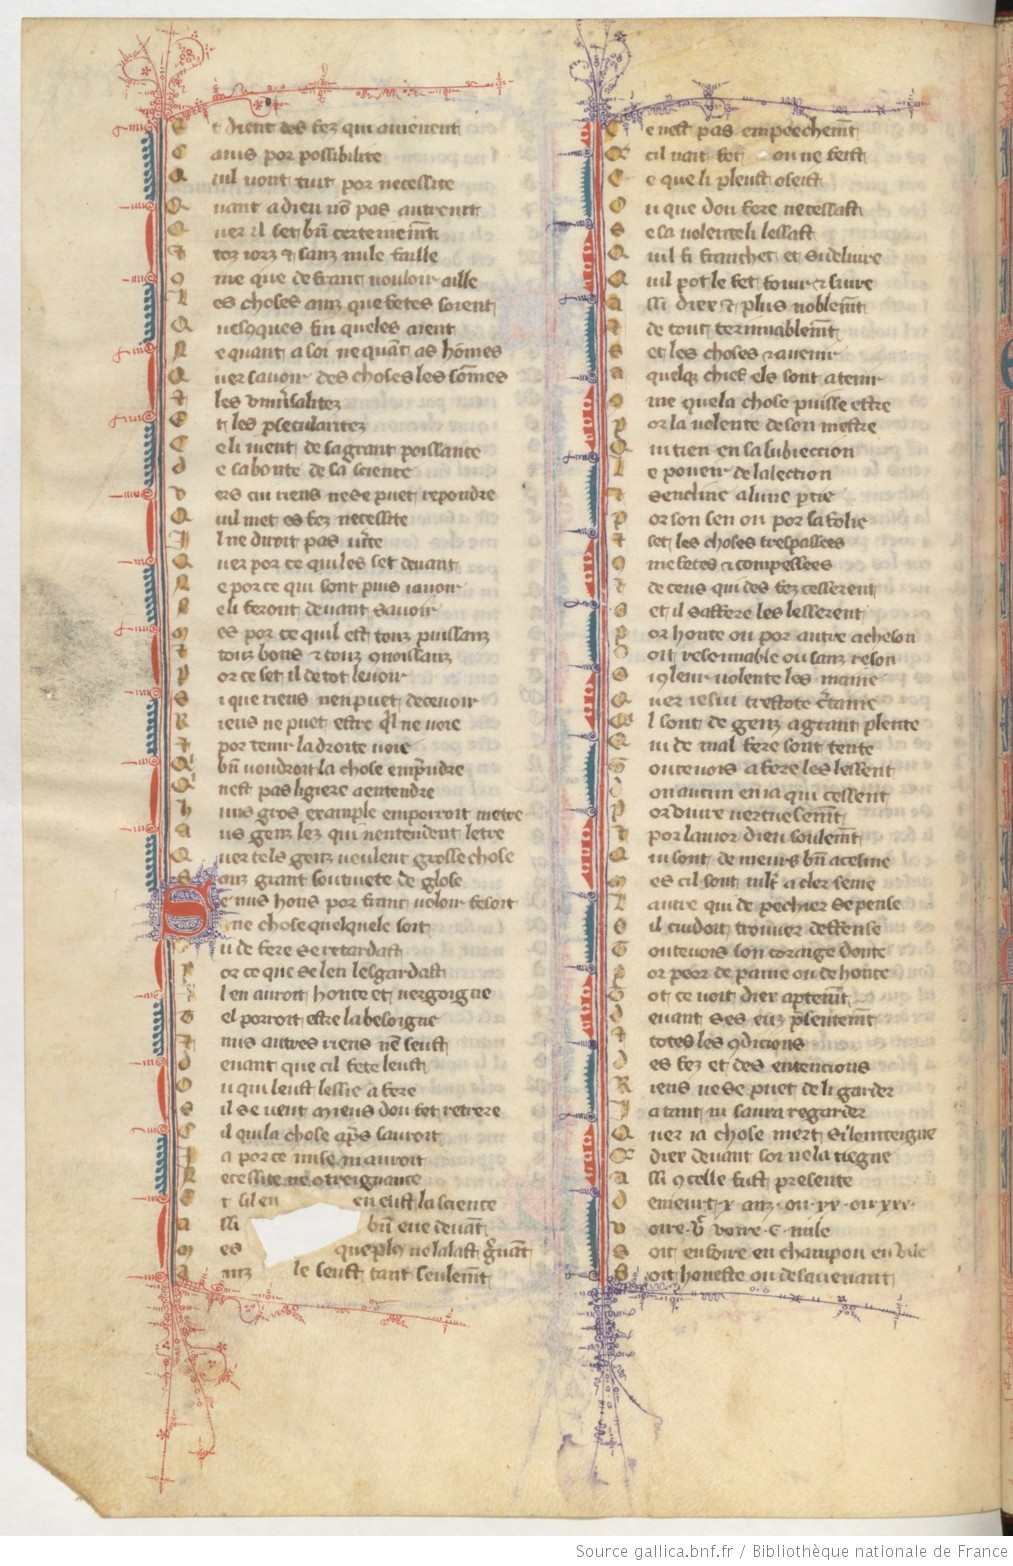 Et dient des fez qui avienent
C auis por possibilite
Q uil vont tuit por necessite
Q uant a dieu nō pas autremt
Q uer il set bn̄ certeinemt̄
T oz iorz ⁊ sanz nule faille
9 me que de franc vouloir aille
L es choses ainz que fetes soient
Q uesques fin queles aient
N e quant a soi ne quāt as hōmes
Q uer sauoir des choses les sōmes
T les vniūsalitez
E t les pticularitez
C e li vient de sa grant poissance
d e sa bonte de sa science
v ers cui riens ne se puet repondre
Q uil met es fez necessite
I l ne diroit pas v̄ite
Q uer por ce quil les set deuant
N e por ce qui sont puis iauoir
N e li feront deuant sauoir
m es por ce quil est touz puissanz
t touz bons ⁊ touz 9noissanz
p or ce set il de tot le voir
S i que riens nen puet deceuoir
R iens ne puet estre q̄l ne voie
t por tenir la droite voie
Q bn̄ voudroit la chose emprendre
Q nest pas ligiere a entendre
h uns gros example en porroit metre
a us genz lez qui nentendent letre
Q uer tels genz veulent grosse chose
S anz grant soutiuete de glose
S e nus hons por franc voloir fesoit
une chose quelquele soit
u de fere se retardast
p or ce que se len lesgardast
l en auroit honte et vergoigne
t el porroit estre la besoigne
t nus autres riens nē seust
d euant que cil fete leust
o u qui leust lessie a fere
s il se veut miens dou fet retrere
C il qui la chose aps̄ sauroit
I a por ce mise ni auroit
N ecessite ne 9treignance
E t sil en en eust la science
a ssi bn̄ eue deuāt
m es que plus ne lalast gr̄uant
a inz le seust tant seulemt̄
C e nest pas empeechemt̄
Q cil nait fet ou ne feist
C e que li pleust o feist
O u que dou fere ne cessast
S e sa volente li lessast
Q uil a franche et si deliure
Q uil pot le fet fouir ⁊ suire
a ssi diex ⁊ plus noblemt̄
t de tout terminablemt̄
S et les choses a auenir
a quelq̄ chief els sont a tenir
9 me que la chose puisse estre
p or la volente de son mestre
Q ui tien en sa subiection
L e pouoir de lalection
t sencline a lune ptie
p or son sen ou por sa folie
t set les choses trespassees
9 me fetes ⁊ compessees
t de ceus qui des fez cesserent
S et il saffere les lesserent
p or honte ou por autre acheson
s oit resonnable ou sanz reson
S i 9 leur volente les maine
Q uer ie sui trestote c̄taine
Q l sont de genz a grant plente
Q ui de mal fere sont tente
T outeuois a fere les lessent
D on aucun en ia qui cessent
p or viure vertuesemt̄
t por lamor dieu seulemt̄
Q ui sont de meurs bn̄ acesme
m es cil sont mlt̄ a cler seme
L autre qui de pechier se pense
S il cuidoit trouuer deffense
T outeuois son coraige donte
p or peor de paine ou de honte
T ot ce voit diex apertemt̄
d euant ses euz p̄sentemt̄
t totes les 9dicions
d es fez et des entencions
R iens ne se puet de li garder
I a tant ni saura regarder
Q uer ia chose niert si lointeigne
Q diex deuant soi ne la tiegne
a ssi 9 celle fust presente
d emeurt ·x· anz ou ·xx· ou ·xxx·
v oire ·v͡c· voire ·c· mile
S oit en foire en champ ou en vile
S oit honeste ou desauenant
Source gallica.bnf.fr / Bibliothèque nationale de France